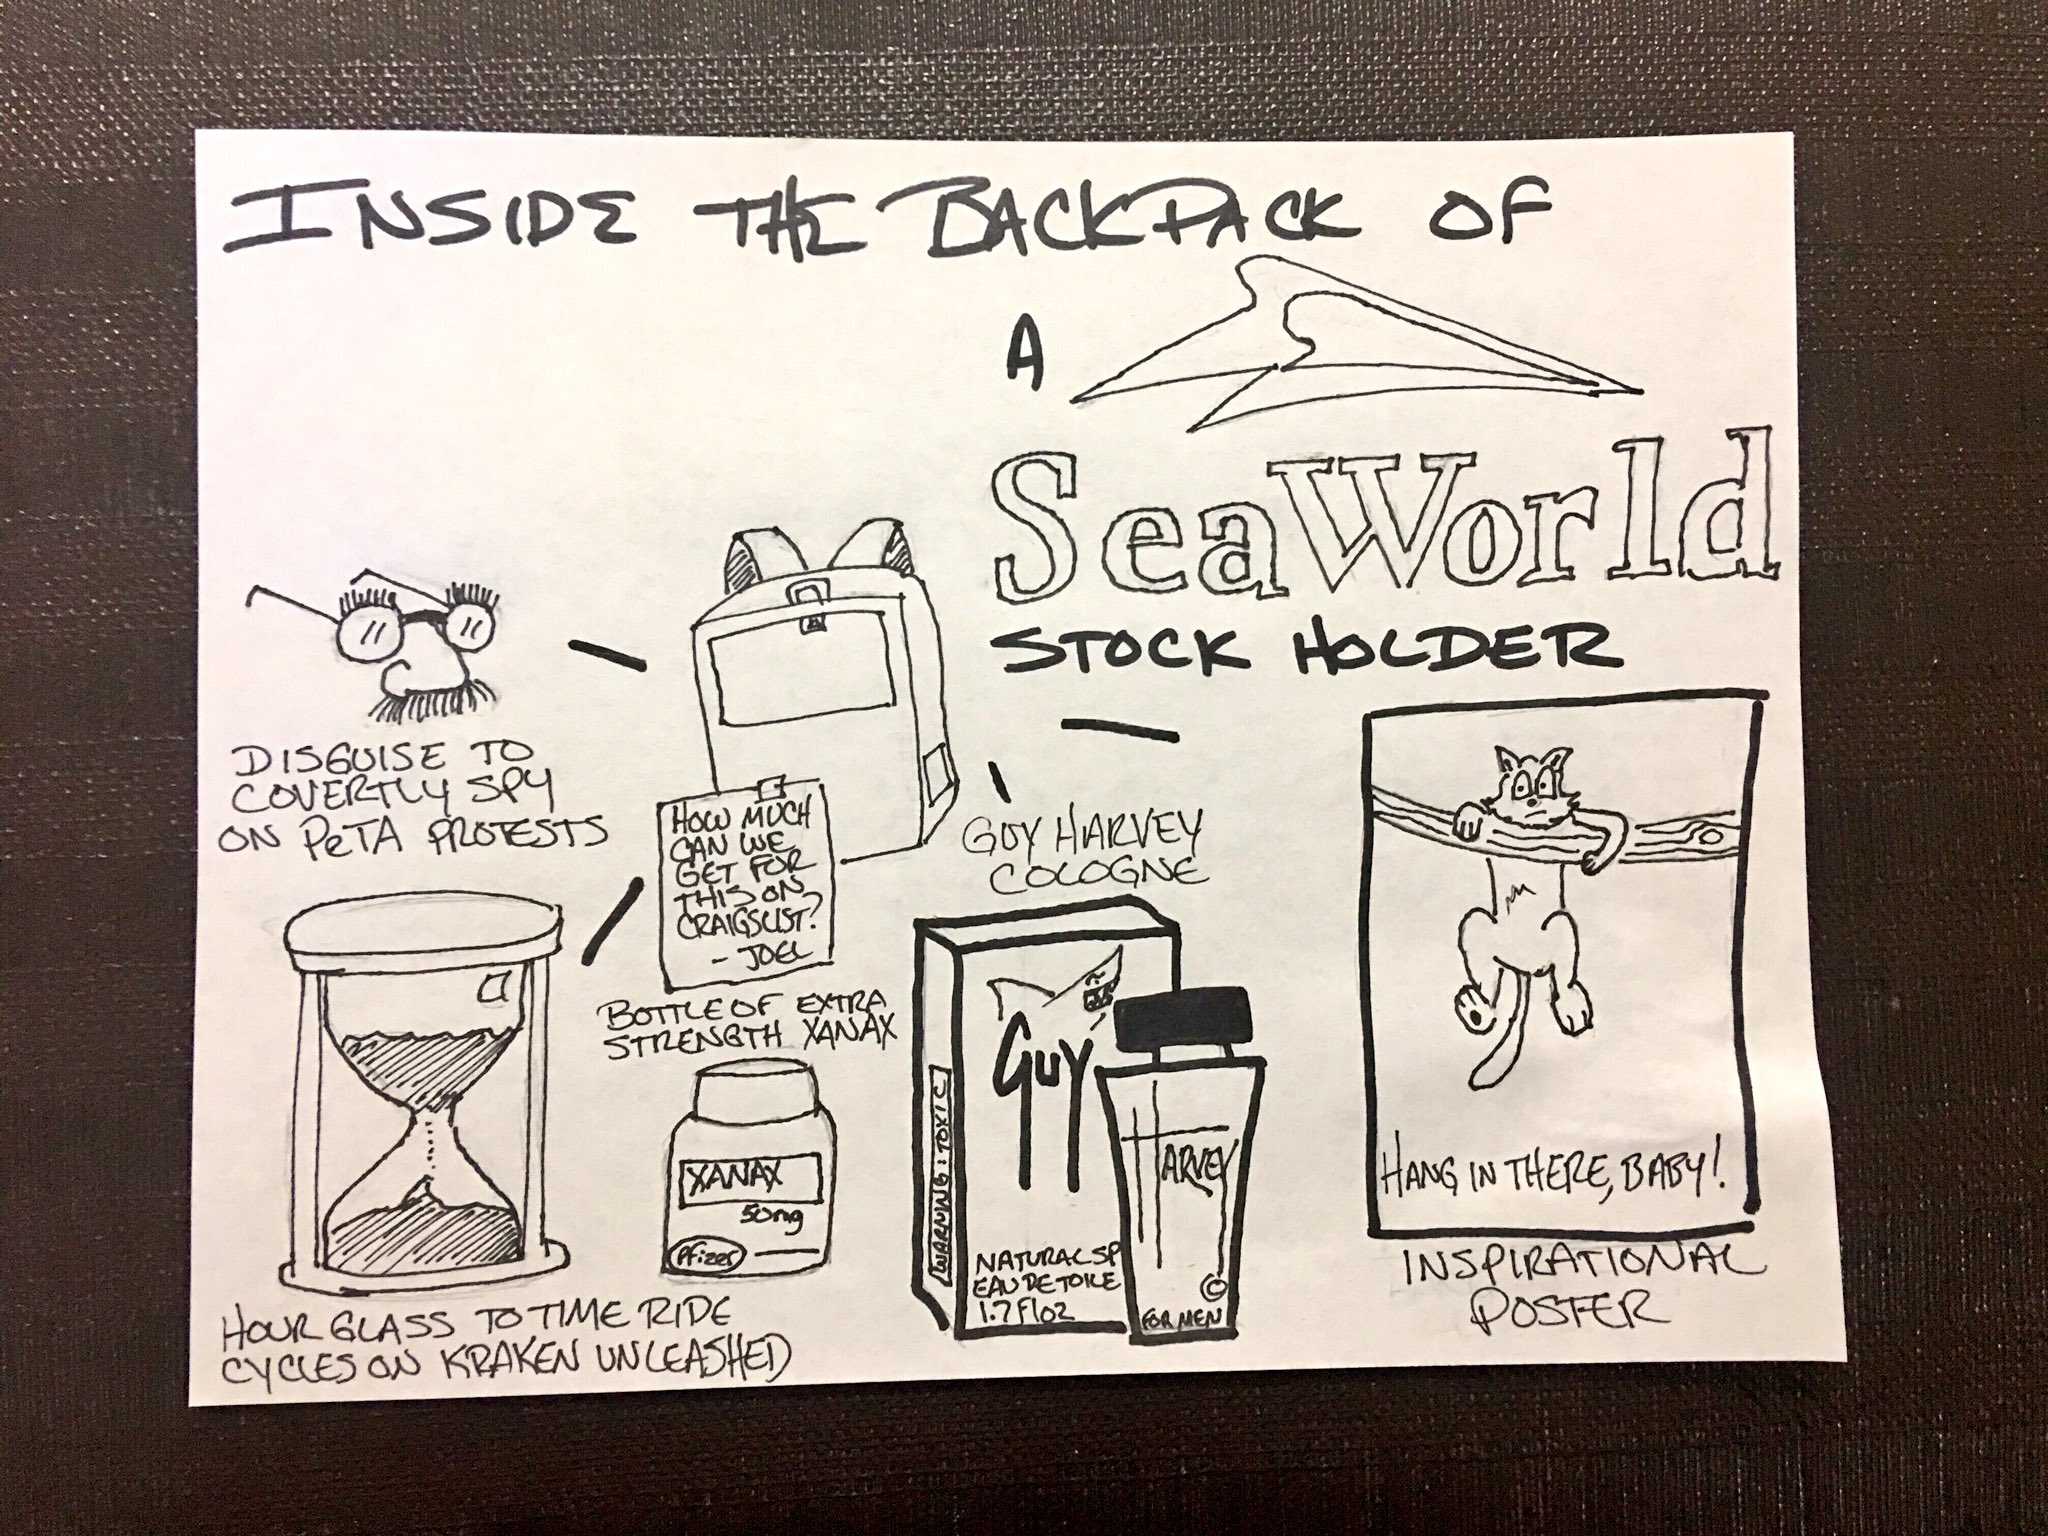 INSIDE THE BACKPACK OF
A
SeaWorld
STOCK HOLDER
DISGUISE TO
COVERTLY SPY
ON PeTA PROTESTS
HOW MUCH
CAN WE
GET FOR
THIS ON
CRAIGSLIST?
- JOEL
GUY HARVEY
COLOGNE
GUY
WARNING: TOXIC
NATURAL SP
EAU DE TOILE
1.7 Fl oz
HARVEY
©
FOR MEN
HANG IN THERE, BABY!
INSPIRATIONAL
POSTER
BOTTLE OF EXTRA
STRENGTH XANAX
XANAX
50mg
Pfizer
HOUR GLASS TO TIME RIDE
CYCLES ON KRAKEN UNLEASHED